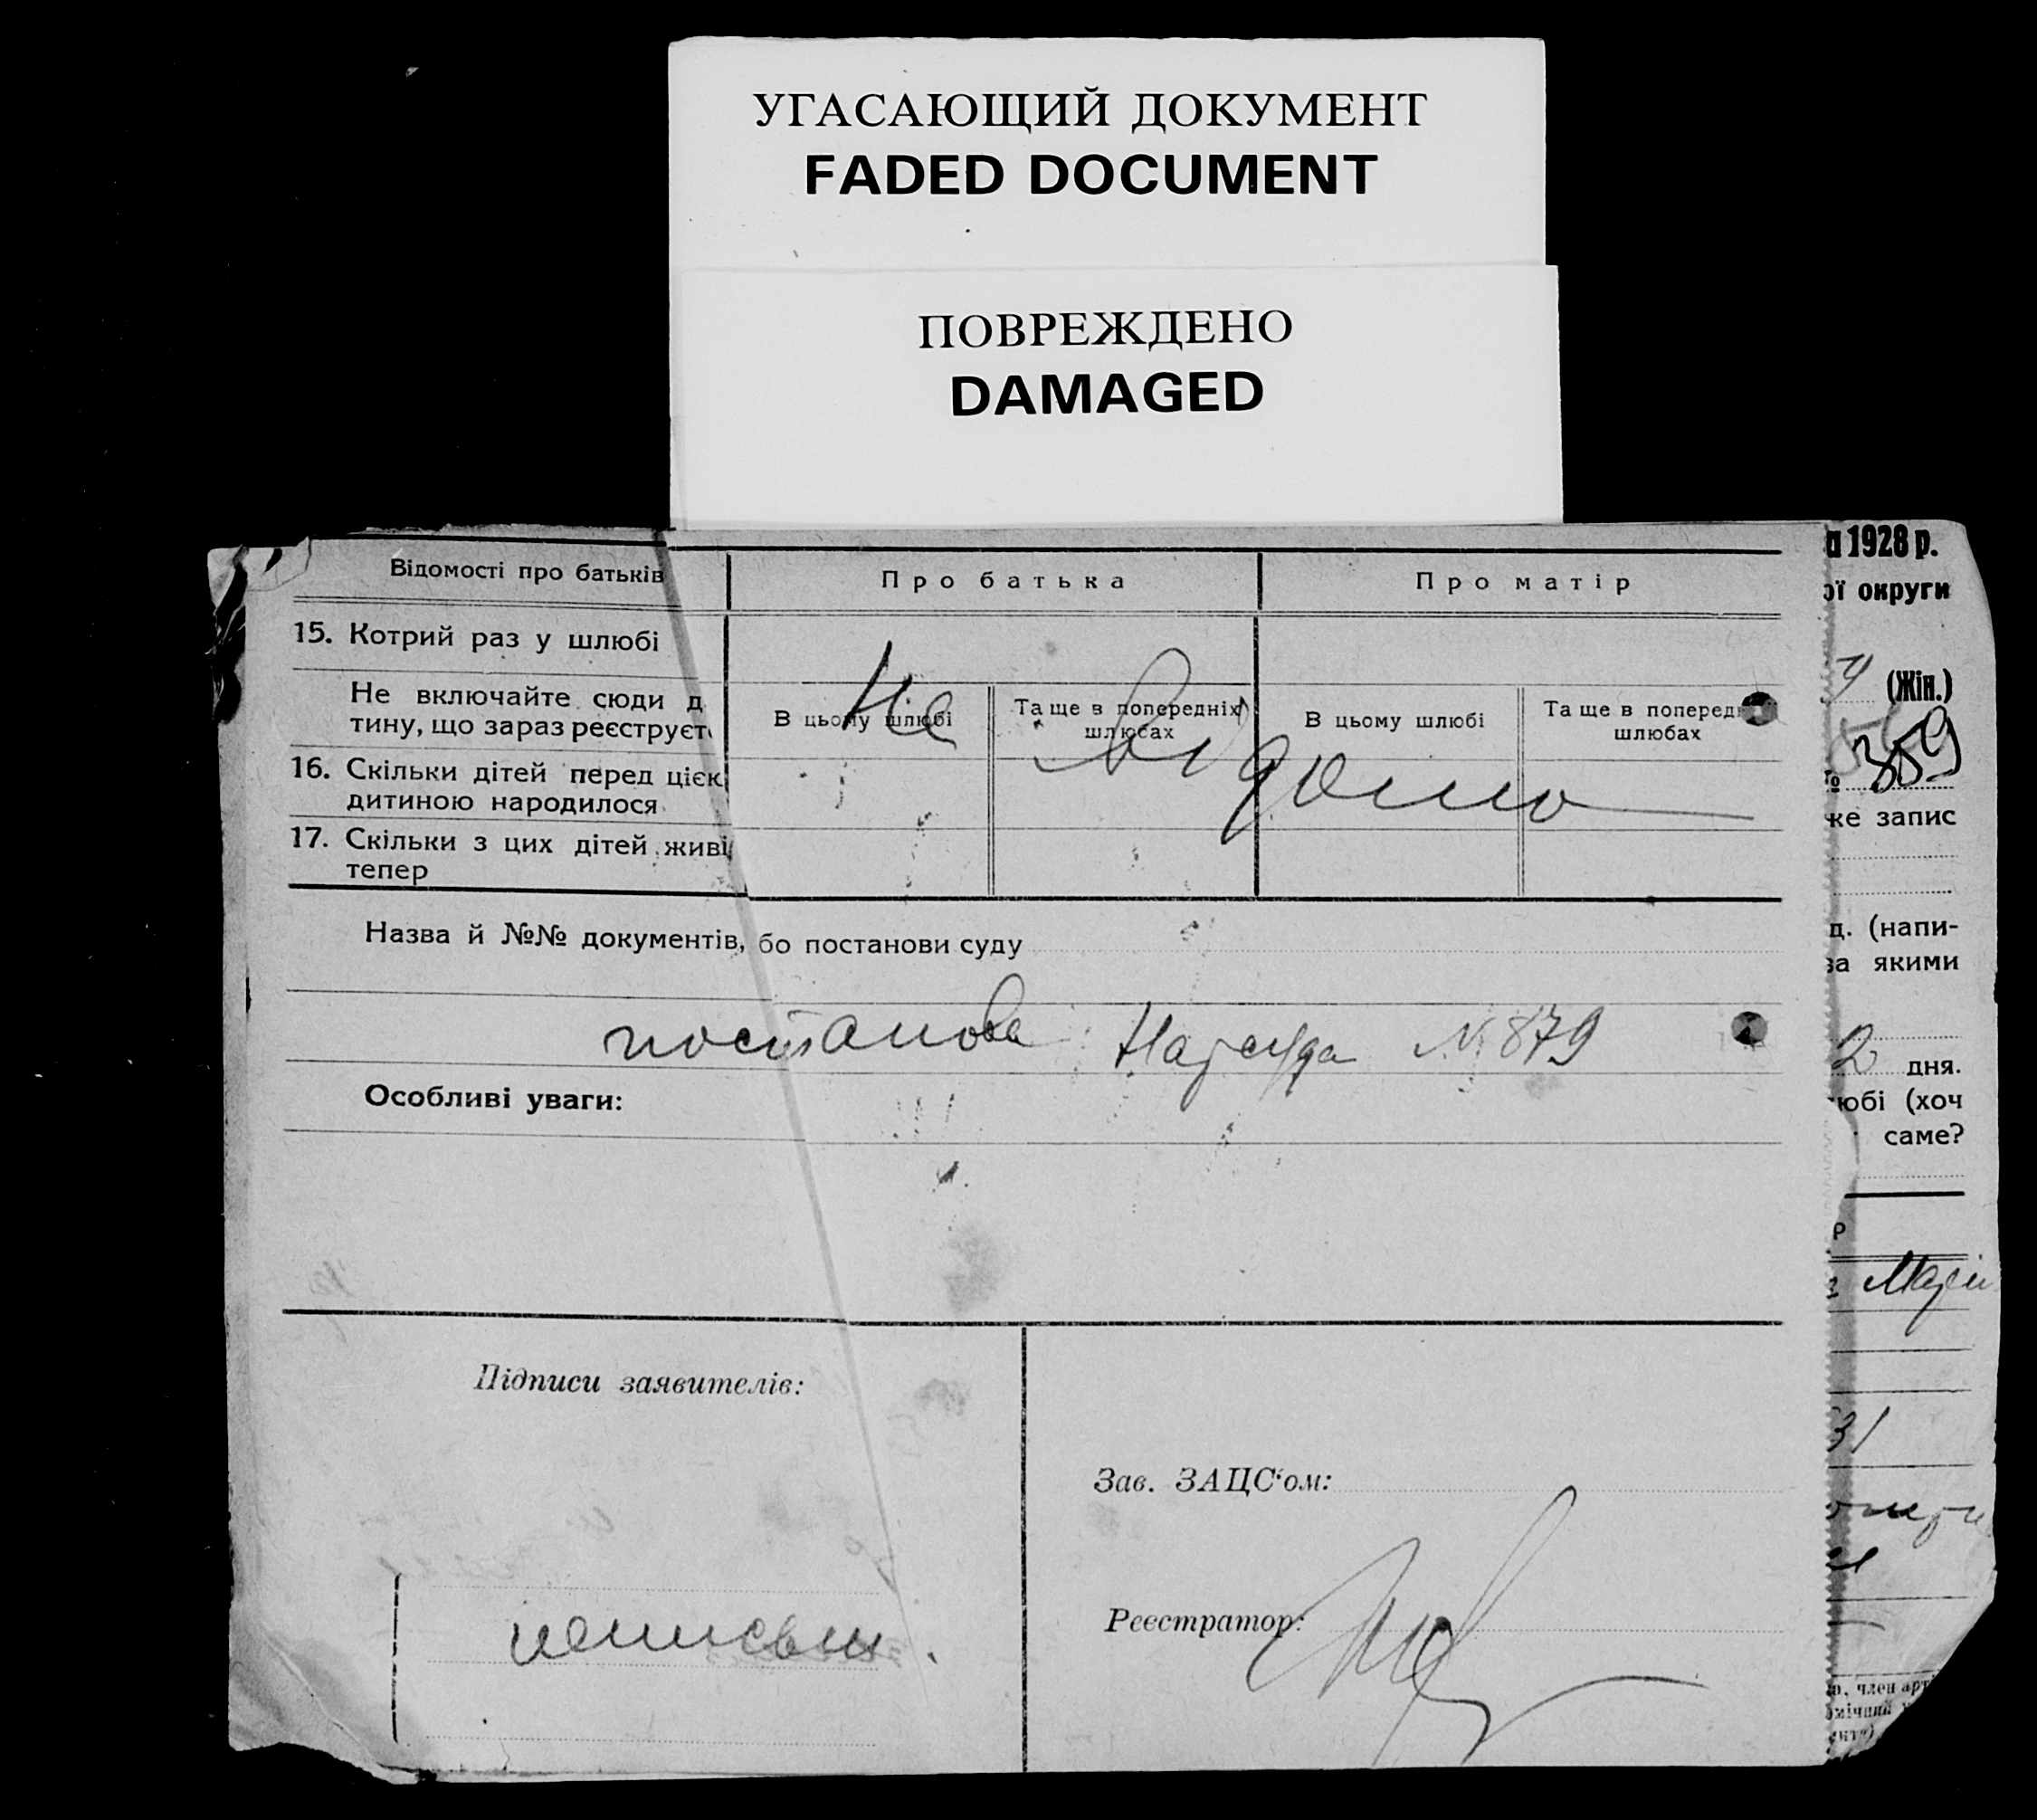 УГАСАЮЩИЙ ДОКУМЕНТ
FADED DOCUMENT
ПОВРЕЖДЕНО
DAMAGED
Відомості про батьків
Про батька
Про матір
15. Котрий раз у шлюбі
Не включайте сюди д
тину, що зараз реєструєт
В цьому шлюбі
Та ще в попередніх
шлюбах
В цьому шлюбі
Та ще в поперед
шлюбах
Не відомо
16. Скільки дітей перед ціє
дитиною народилося
17. Скільки з цих дітей живі
тепер
Назва й №№ документів, бо постанови суду
постанова Нарсуда N 879
Особливі уваги:
Підписи заявителів:
Зав. ЗАЦС'ом:
Реєстратор:
1928 р.
ої округи
(Жін.)
359
же запис
д. (напи-
за якими
2 дня.
юбі (хоч
саме?
Р
Марія
31
член арт